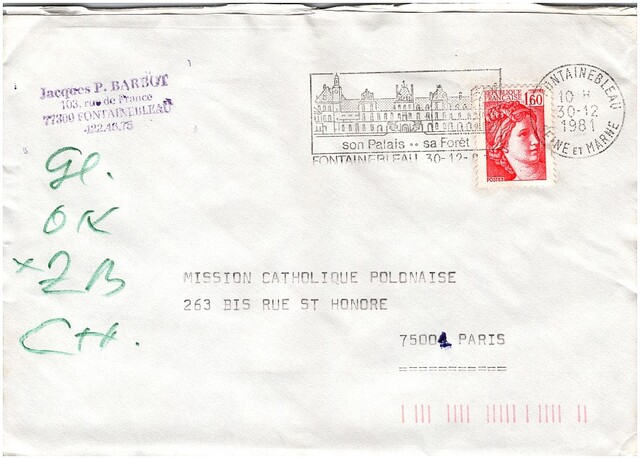 Jacques P. BARBOT
103, rue de France
77300 FONTAINEBLEAU
422.46.75
son Palais .. sa Forêt
FONTAINEBLEAU 30-12-
REPUBLIQUE
FRANÇAISE
1,60
POSTES
FONTAINEBLEAU
10 H
30-12
1981
SEINE ET MARNE
Gl.
OK
x ZB
CH.
MISSION CATHOLIQUE POLONAISE
263 BIS RUE ST HONORE
75001 PARIS